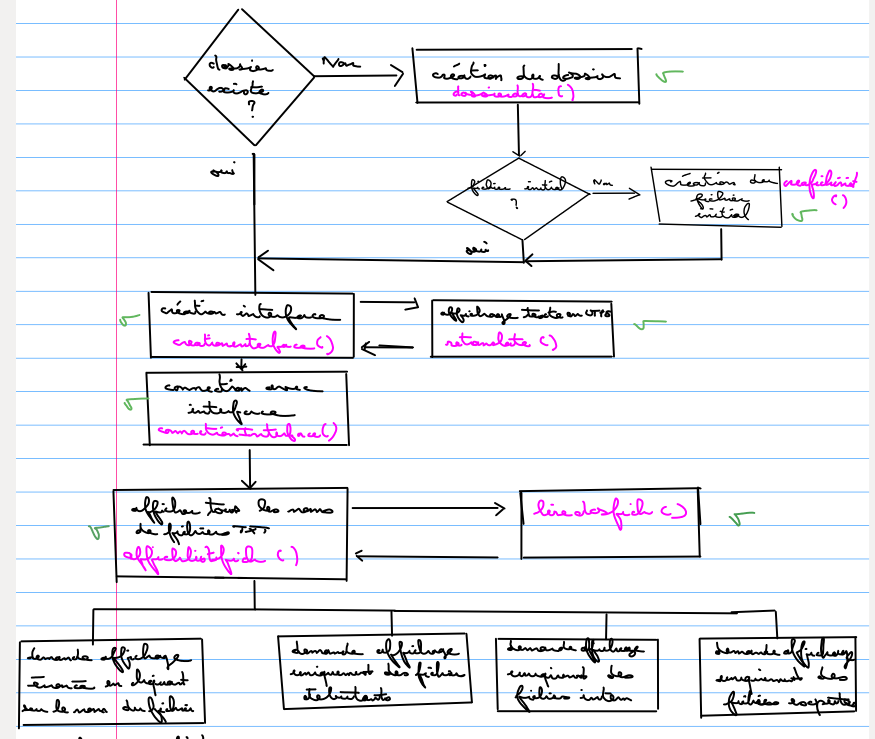 dossier
existe
?
Non
création du dossier
dossierdata()
oui
fichier initial
?
Non
création du
fichier
initial
creafichinit
()
oui
création interface
creationinterface()
affichage texte en UTF8
()
connection avec
interface
connectionInterface()
afficher tous les noms
de fichiers TXT
affichlistfich ()
liredosfich ()
demande affichage
énoncé en cliquant
sur le nom du fichier
demande affichage
uniquement des fichier
debutants
demande affichage
uniquement des
fichiers interm
demande affichage
uniquement des